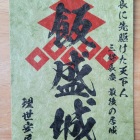 長に先駆けた天下人
三好長慶 最後の居城
飯盛城
理世安民